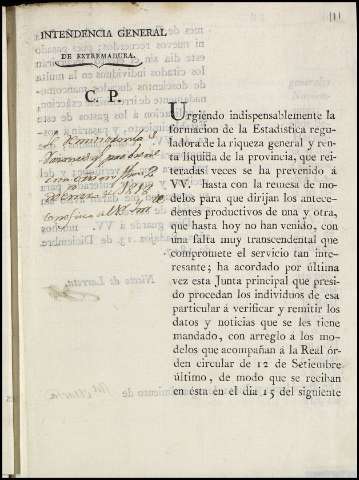 INTENDENCIA GENERAL
DE EXTREMADURA.
C. P.
Urgiendo indispensablemente la
formacion de la Estadística regu-
ladora de la riqueza general y ren-
ta líquida de la provincia, que rei-
teradas veces se ha prevenido á
VV. hasta con la remesa de mo-
delos para que dirijan los antece-
dentes productivos de una y otra,
que hasta hoy no han venido, con
una falta muy transcendental que
compromete el servicio tan inte-
resante; ha acordado por última
vez esta Junta principal que presi-
do procedan los individuos de esa
particular á verificar y remitir los
datos y noticias que se les tiene
mandado, con arreglo á los mo-
delos que acompañan á la Real ór-
den circular de 12 de Setiembre
último, de modo que se reciban
en esta en el dia 15 del siguiente